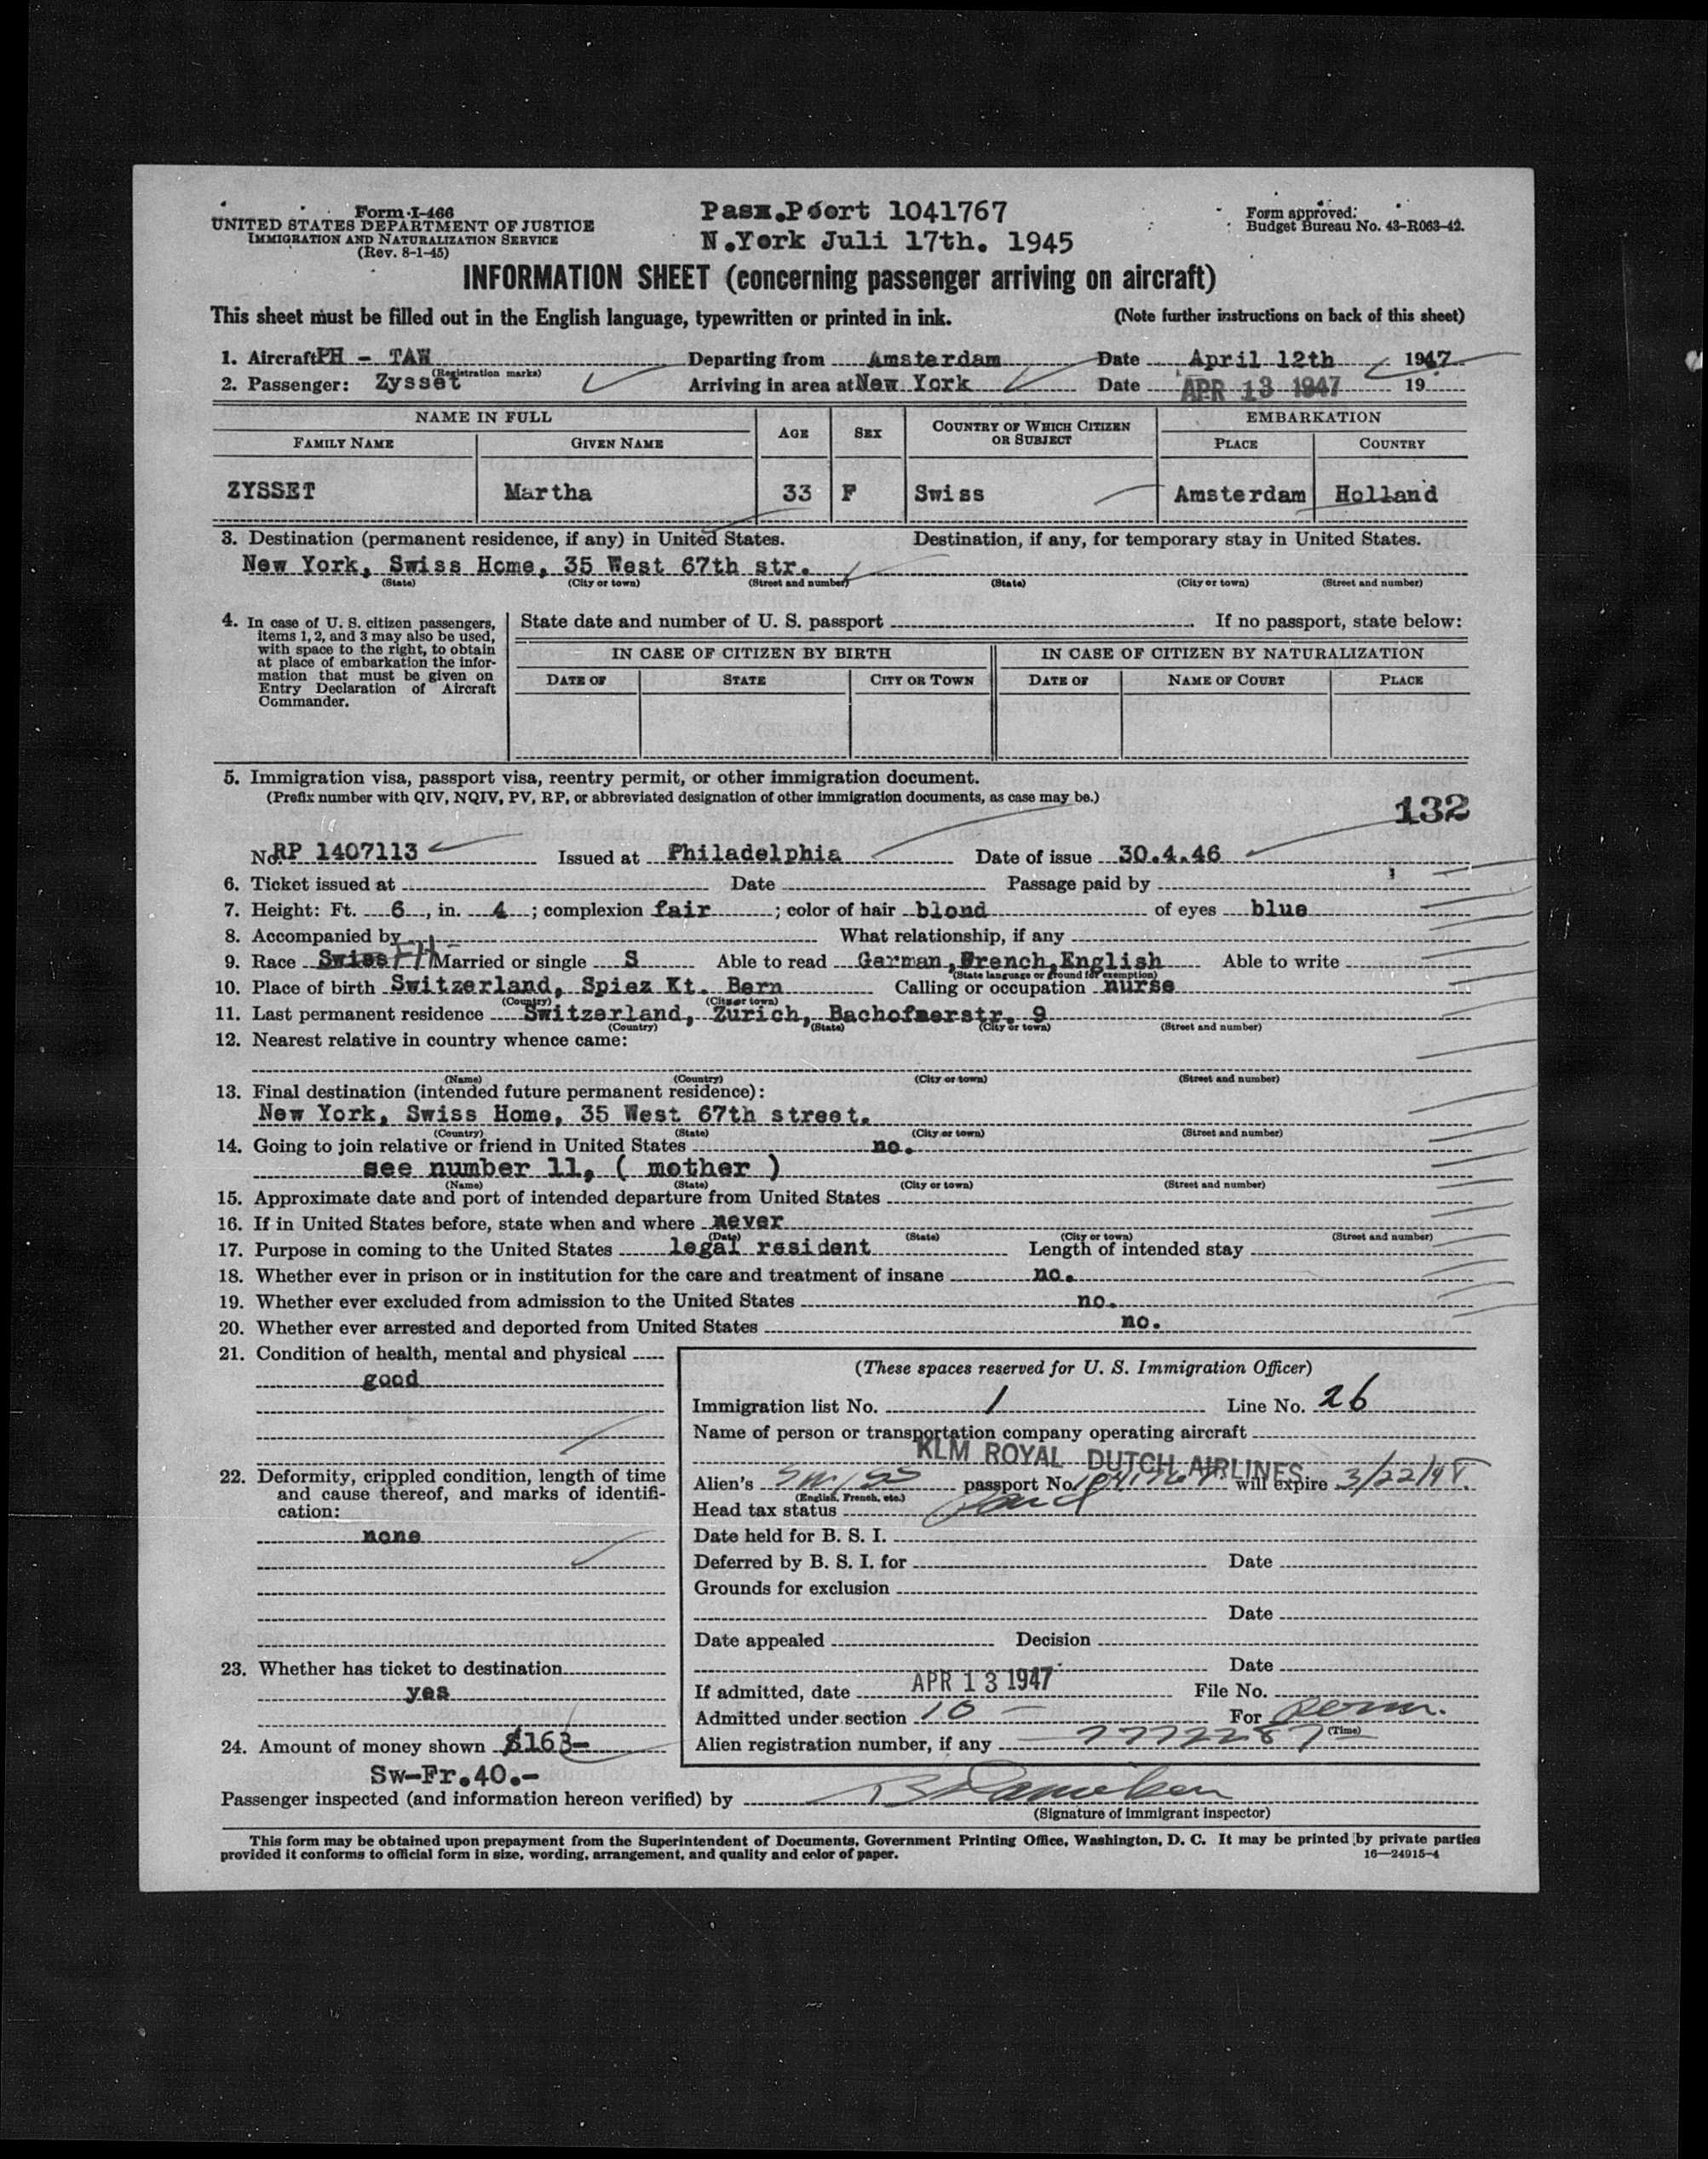 Form I-466
UNITED STATES DEPARTMENT OF JUSTICE
IMMIGRATION AND NATURALIZATION SERVICE
(Rev. 8-1-45)
Pasx.Poort 1041767
N.York Juli 17th. 1945
Form approved:
Budget Bureau No. 43-R063-42.
INFORMATION SHEET (concerning passenger arriving on aircraft)
This sheet must be filled out in the English language, typewritten or printed in ink. (Note further instructions on back of this sheet)
1. Aircraft PH - TAW Departing from Amsterdam Date April 12th 1947
(Registration marks)
2. Passenger: Zysset Arriving in area at New York Date APR 13 1947 19
NAME IN FULL AGE SEX COUNTRY OF WHICH CITIZEN OR SUBJECT EMBARKATION
FAMILY NAME GIVEN NAME PLACE COUNTRY
ZYSSET Martha 33 F Swiss Amsterdam Holland
3. Destination (permanent residence, if any) in United States. Destination, if any, for temporary stay in United States.
New York, Swiss Home, 35 West 67th str.
(State) (City or town) (Street and number) (State) (City or town) (Street and number)
4. In case of U. S. citizen passengers, items 1, 2, and 3 may also be used, with space to the right, to obtain at place of embarkation the information that must be given on Entry Declaration of Aircraft Commander.
State date and number of U. S. passport . If no passport, state below:
IN CASE OF CITIZEN BY BIRTH IN CASE OF CITIZEN BY NATURALIZATION
DATE OF STATE CITY OR TOWN DATE OF NAME OF COURT PLACE
5. Immigration visa, passport visa, reentry permit, or other immigration document.
(Prefix number with QIV, NQIV, PV, RP, or abbreviated designation of other immigration documents, as case may be.)
132
No. RP 1407113 Issued at Philadelphia Date of issue 30.4.46
6. Ticket issued at Date Passage paid by
7. Height: Ft. 6, in. 4; complexion fair; color of hair blond of eyes blue
8. Accompanied by What relationship, if any
9. Race Swiss Married or single S Able to read German, French, English Able to write
(State language or ground for exemption)
10. Place of birth Switzerland, Spiez Kt. Bern Calling or occupation nurse
(Country) (City or town)
11. Last permanent residence Switzerland, Zurich, Bachofnerstr. 9
(Country) (State) (City or town) (Street and number)
12. Nearest relative in country whence came:
(Name) (Country) (City or town) (Street and number)
13. Final destination (intended future permanent residence):
New York, Swiss Home, 35 West 67th street.
(Country) (State) (City or town) (Street and number)
14. Going to join relative or friend in United States no.
see number 11, ( mother )
(Name) (State) (City or town) (Street and number)
15. Approximate date and port of intended departure from United States
16. If in United States before, state when and where never
(Date) (State) (City or town) (Street and number)
17. Purpose in coming to the United States legal resident Length of intended stay
18. Whether ever in prison or in institution for the care and treatment of insane no.
19. Whether ever excluded from admission to the United States no.
20. Whether ever arrested and deported from United States no.
21. Condition of health, mental and physical
good
22. Deformity, crippled condition, length of time and cause thereof, and marks of identification:
none
23. Whether has ticket to destination
yes
24. Amount of money shown $163-
Sw-Fr.40.-
(These spaces reserved for U. S. Immigration Officer)
Immigration list No. 1 Line No. 26
Name of person or transportation company operating aircraft
KLM ROYAL DUTCH AIRLINES
Alien's Swiss passport No. 1041767 will expire 3/22/48.
(English, French, etc.)
Head tax status Paid
Date held for B. S. I.
Deferred by B. S. I. for Date
Grounds for exclusion
Date
Date appealed Decision
Date
If admitted, date APR 13 1947 File No.
Admitted under section 10 — For Perm.
(Time)
Alien registration number, if any 7772287
Passenger inspected (and information hereon verified) by
(Signature of immigrant inspector)
This form may be obtained upon prepayment from the Superintendent of Documents, Government Printing Office, Washington, D. C. It may be printed by private parties
provided it conforms to official form in size, wording, arrangement, and quality and color of paper. 16—24915-4